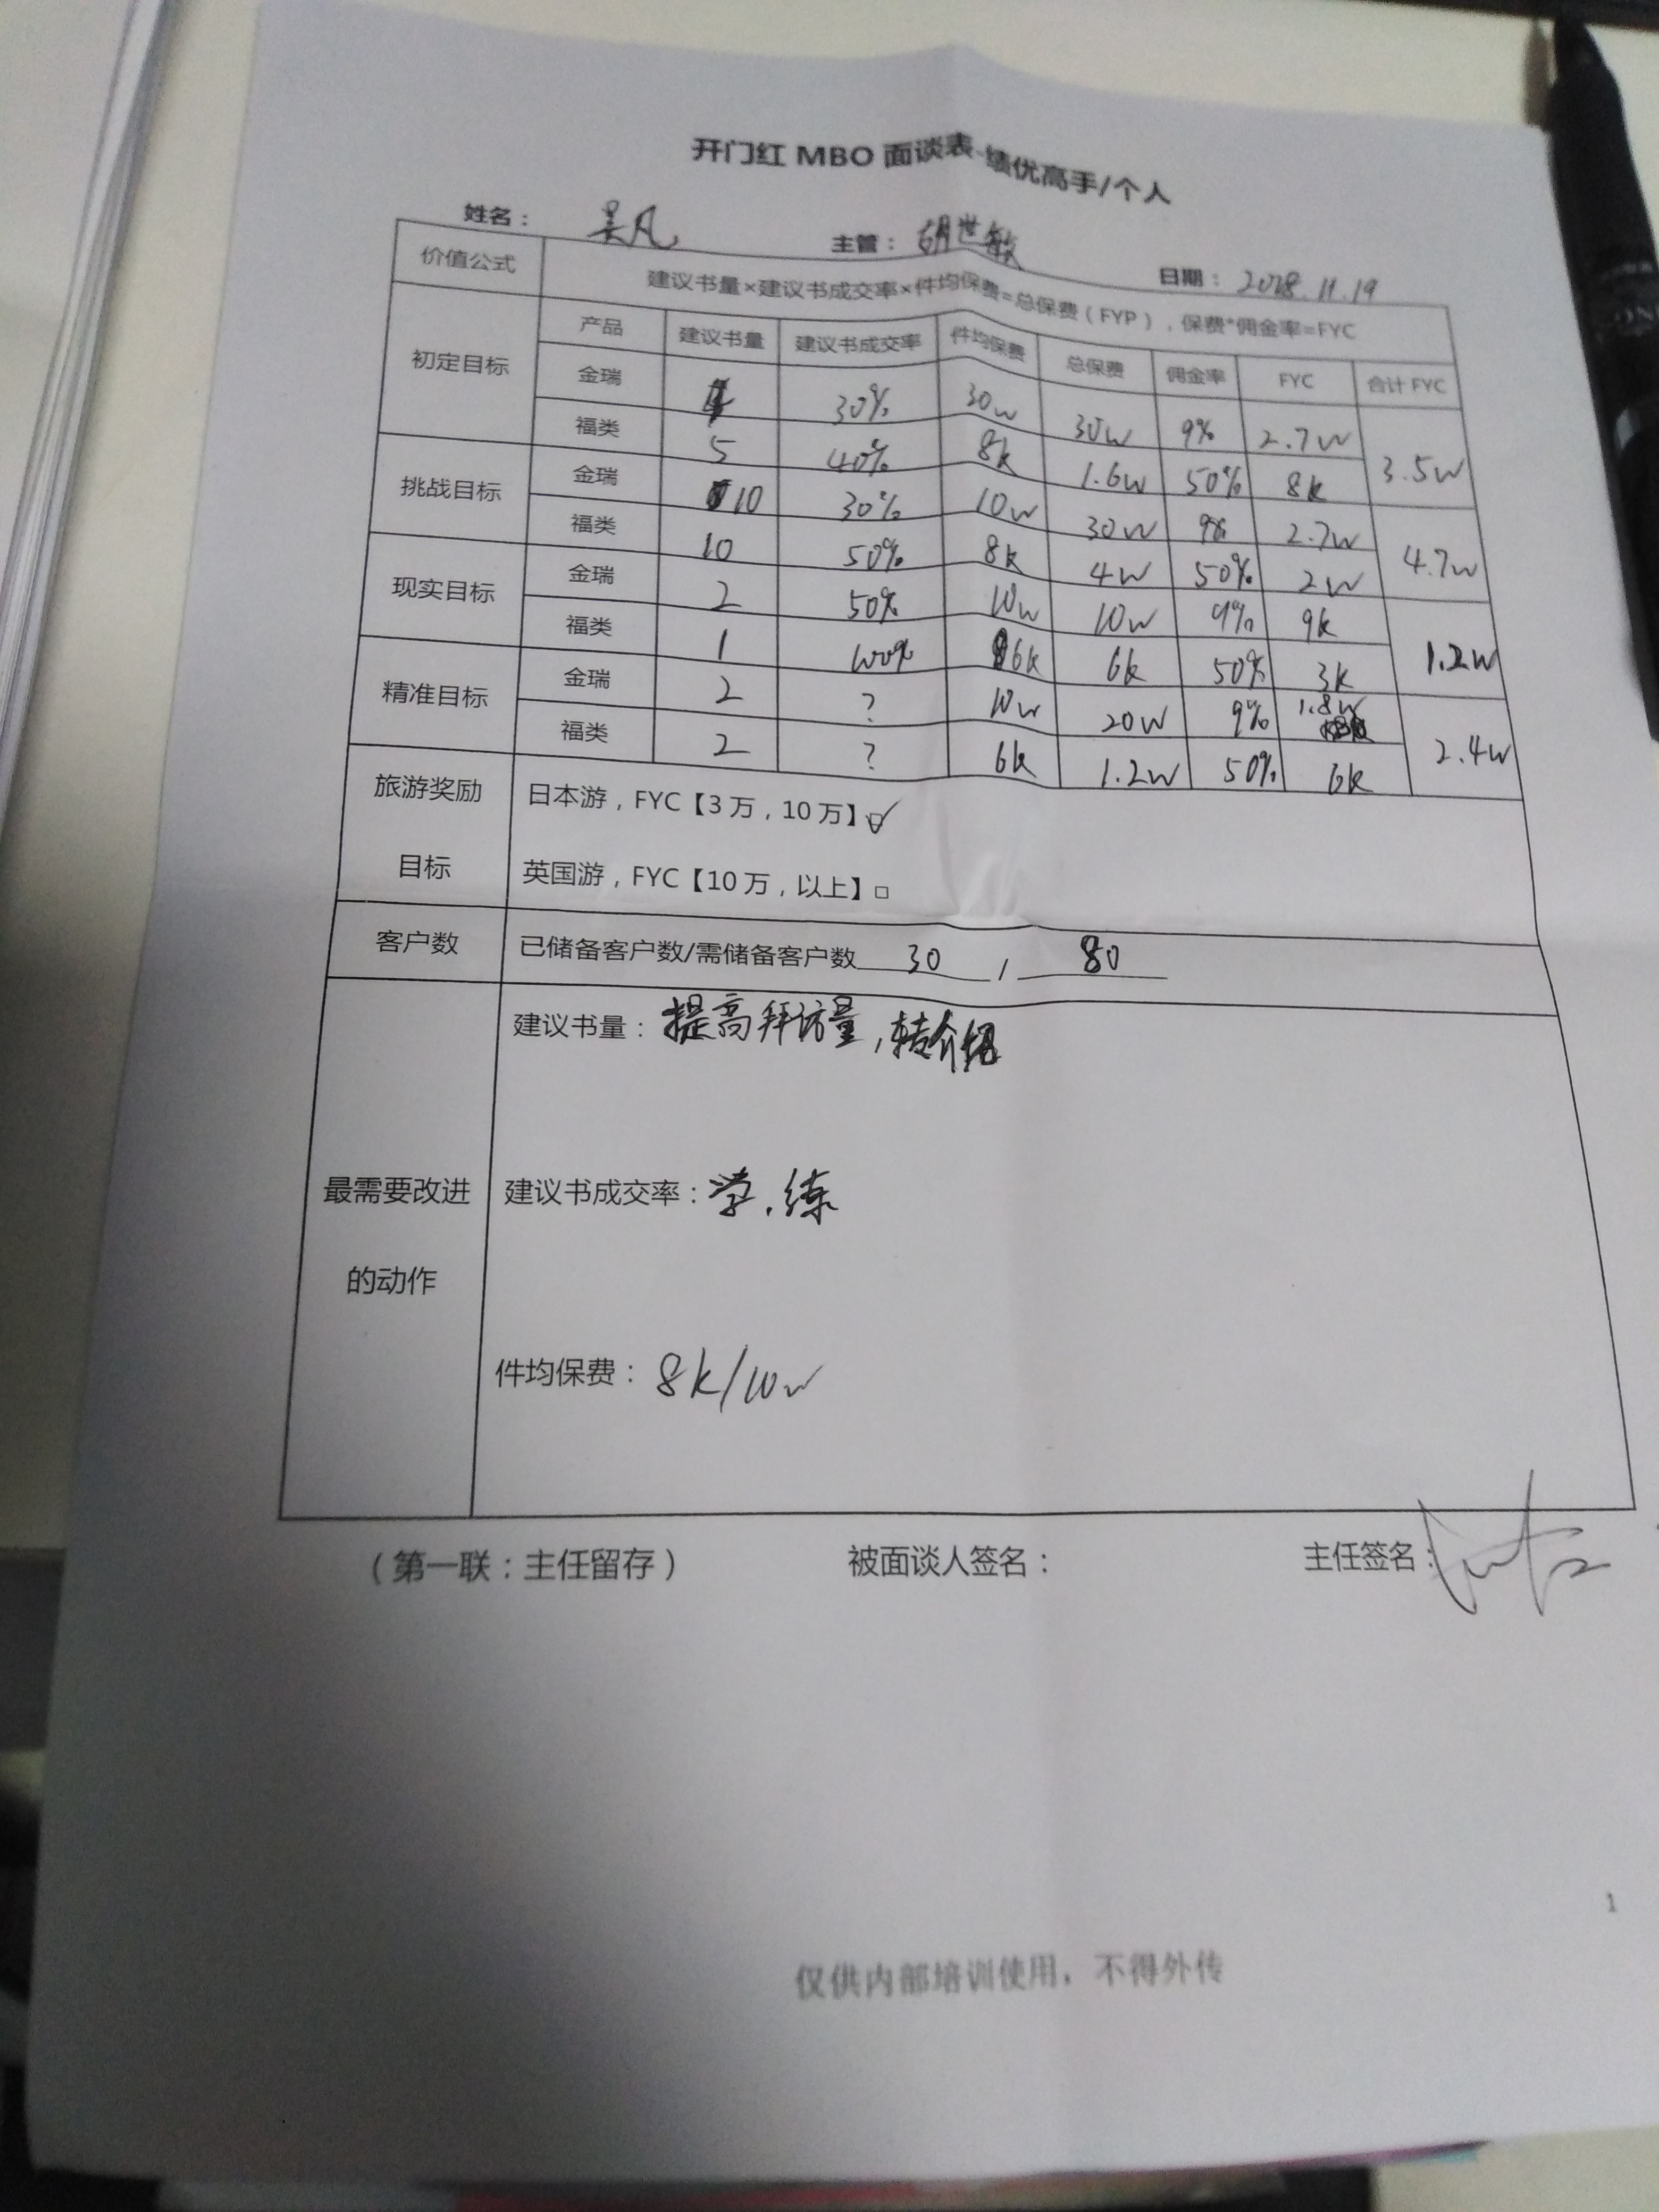 开门红 MBO 面谈表-绩优高手/个人
姓名： 吴凡 主管： 胡世敏 日期： 2018.11.19
价值公式 建议书量×建议书成交率×件均保费=总保费（FYP），保费*佣金率=FYC
初定目标 产品 建议书量 建议书成交率 件均保费 总保费 佣金率 FYC 合计 FYC
金瑞 30% 30w 30w 9% 2.7w 3.5w
福类 5 40% 8k 1.6w 50% 8k
挑战目标 金瑞 10 30% 10w 30w 9% 2.7w 4.7w
福类 10 50% 8k 4w 50% 2w
现实目标 金瑞 2 50% 10w 10w 9% 9k 1.2w
福类 1 100% 6k 6k 50% 3k
精准目标 金瑞 2 ? 10w 20w 9% 1.8w 2.4w
福类 2 ? 6k 1.2w 50% 6k
旅游奖励 日本游，FYC【3 万，10 万】☑
目标 英国游，FYC【10 万，以上】□
客户数 已储备客户数/需储备客户数 30 / 80
建议书量：提高拜访量，转介绍
最需要改进 建议书成交率：学、练
的动作
件均保费：8k/10w
（第一联：主任留存） 被面谈人签名： 主任签名：
1
仅供内部培训使用，不得外传